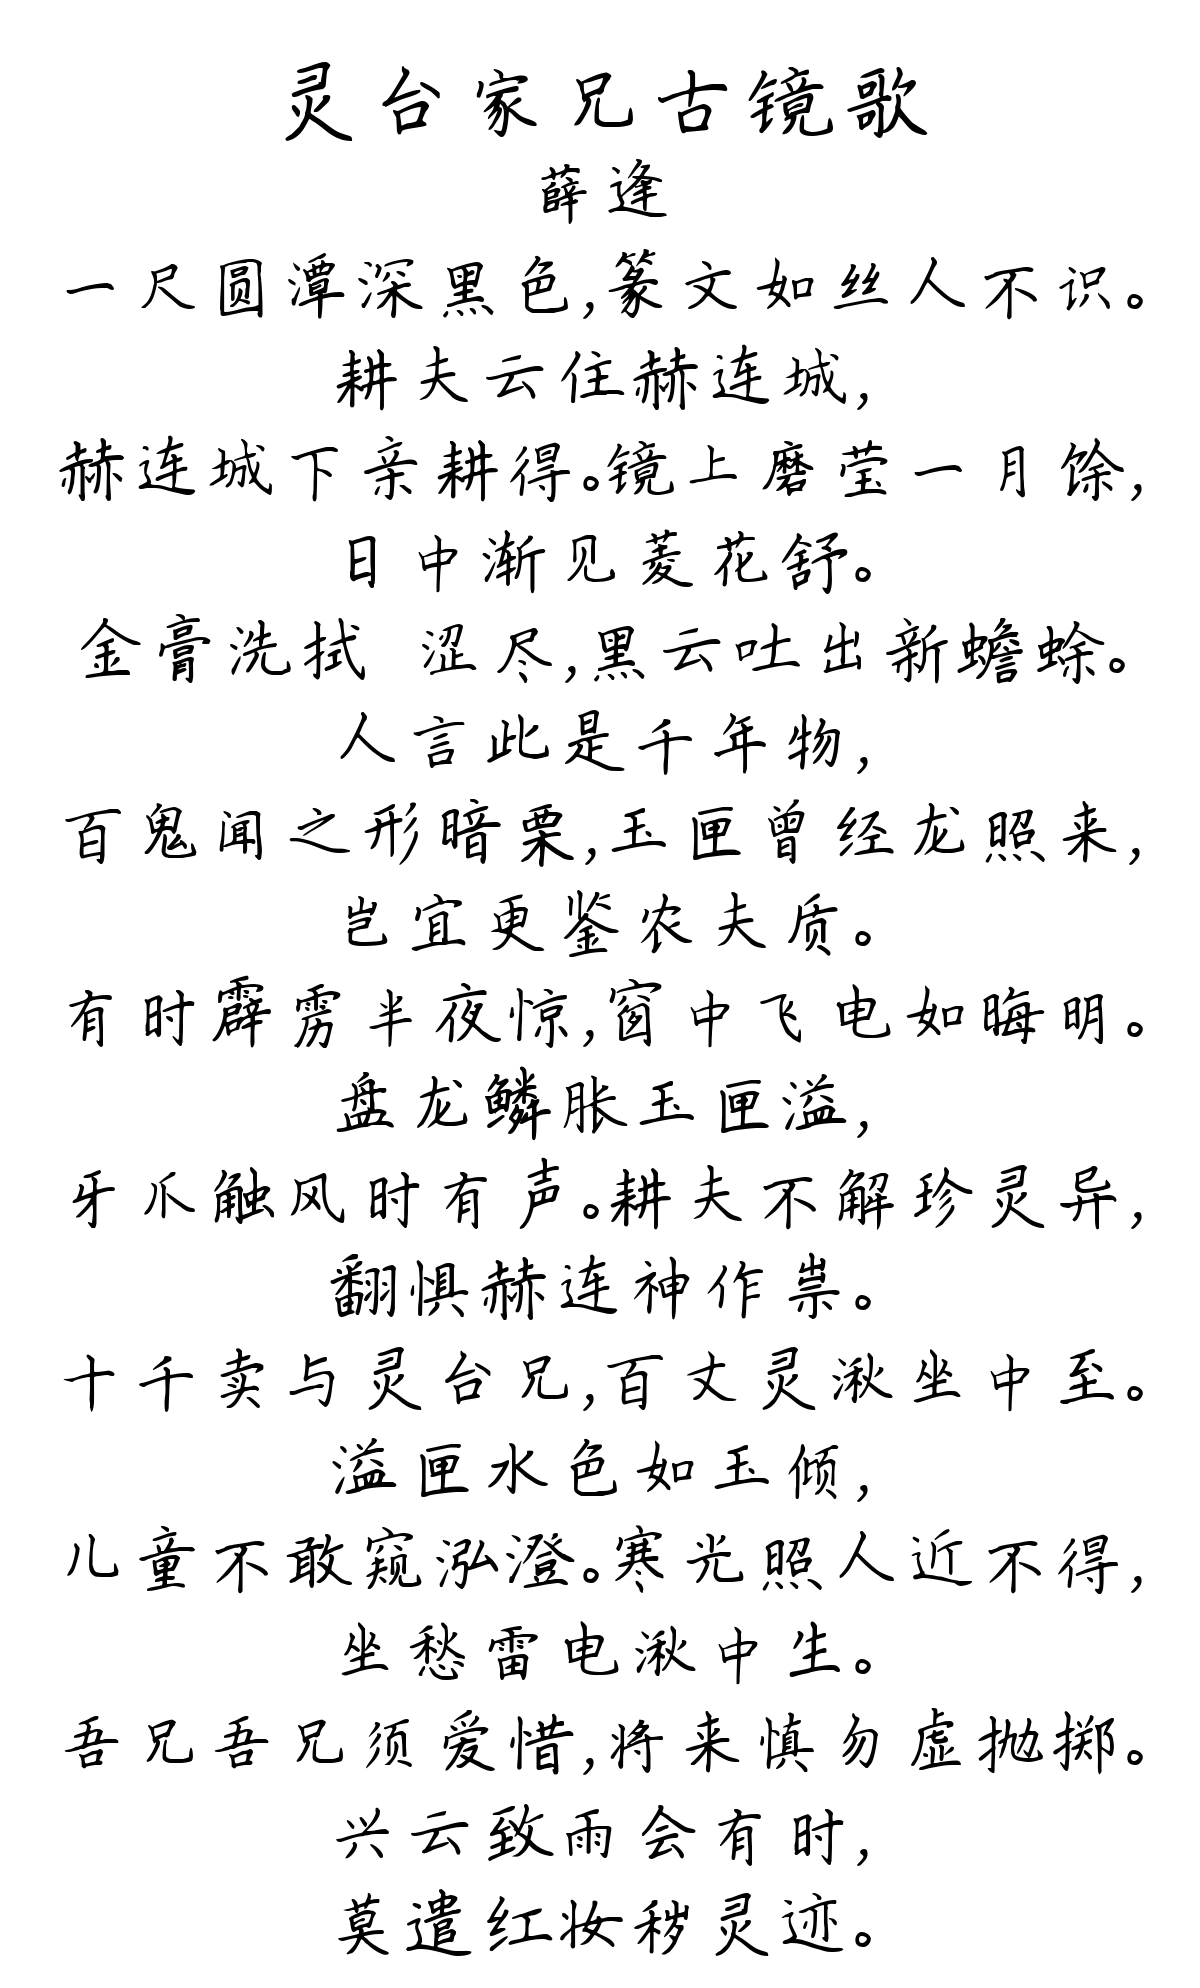 灵台家兄古镜歌
薛逢
一尺圆潭深黑色,篆文如丝人不识。
耕夫云住赫连城,
赫连城下亲耕得。镜上磨莹一月馀,
日中渐见菱花舒。
金膏洗拭 涩尽,黑云吐出新蟾蜍。
人言此是千年物,
百鬼闻之形暗栗,玉匣曾经龙照来,
岂宜更鉴农夫质。
有时霹雳半夜惊,窗中飞电如晦明。
盘龙鳞胀玉匣溢,
牙爪触风时有声。耕夫不解珍灵异,
翻惧赫连神作祟。
十千卖与灵台兄,百丈灵湫坐中至。
溢匣水色如玉倾,
儿童不敢窥泓澄。寒光照人近不得,
坐愁雷电湫中生。
吾兄吾兄须爱惜,将来慎勿虚抛掷。
兴云致雨会有时,
莫遣红妆秽灵迹。